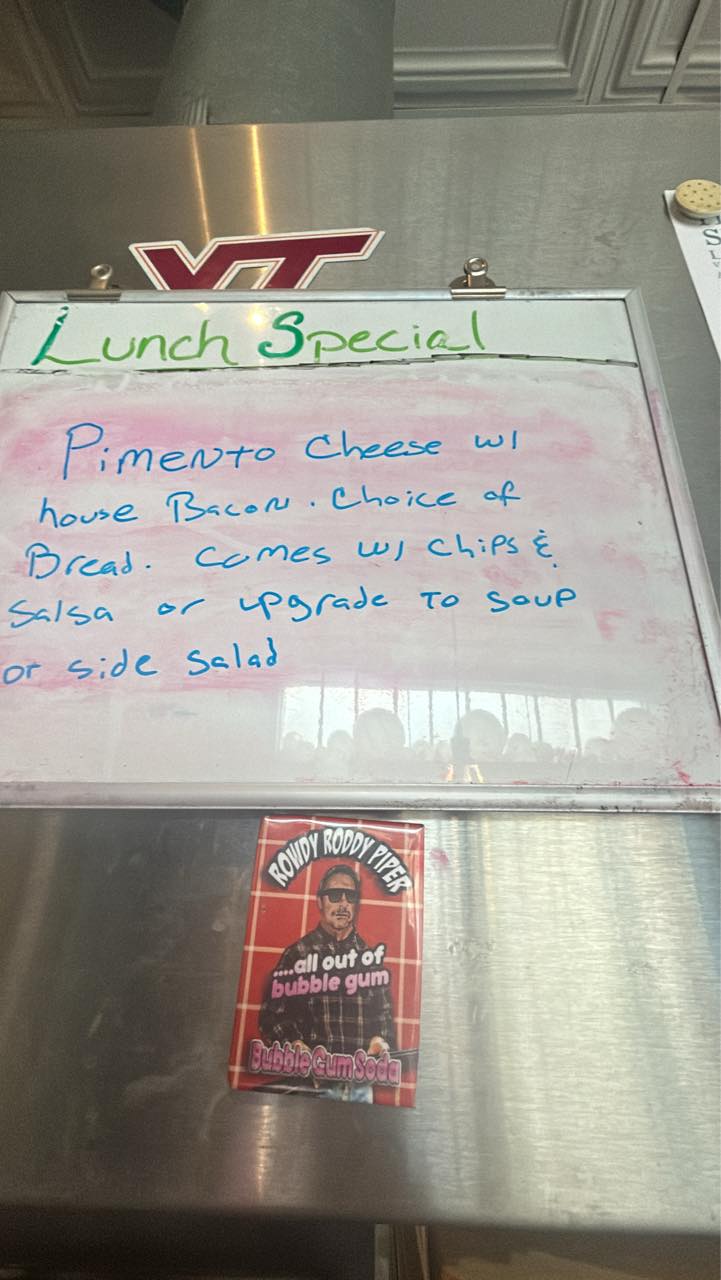 VT
Lunch Special
Pimento Cheese w/
house Bacon. Choice of
Bread. Comes w/ Chips &
Salsa or upgrade to soup
or side salad
ROWDY RODDY PIPER
....all out of
bubble gum
Bubble Gum Soda